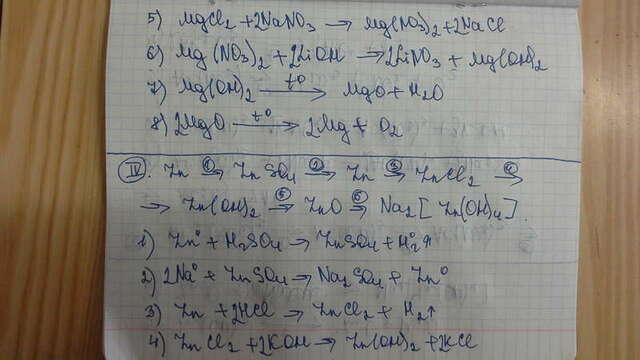 5) MgCl2 + 2NaNO3 → Mg(NO3)2 + 2NaCl
6) Mg(NO3)2 + 2LiOH → 2LiNO3 + Mg(OH)2
7) Mg(OH)2 —t°→ MgO + H2O
8) 2MgO —t°→ 2Mg + O2
IV. Zn —1→ ZnSO4 —2→ Zn —3→ ZnCl2 —4→
→ Zn(OH)2 —5→ ZnO —6→ Na2[Zn(OH)4].
1) Zn° + H2SO4 → ZnSO4 + H2°↑
2) 2Na° + ZnSO4 → Na2SO4 + Zn°
3) Zn + 2HCl → ZnCl2 + H2↑
4) ZnCl2 + 2KOH → Zn(OH)2 + 2KCl